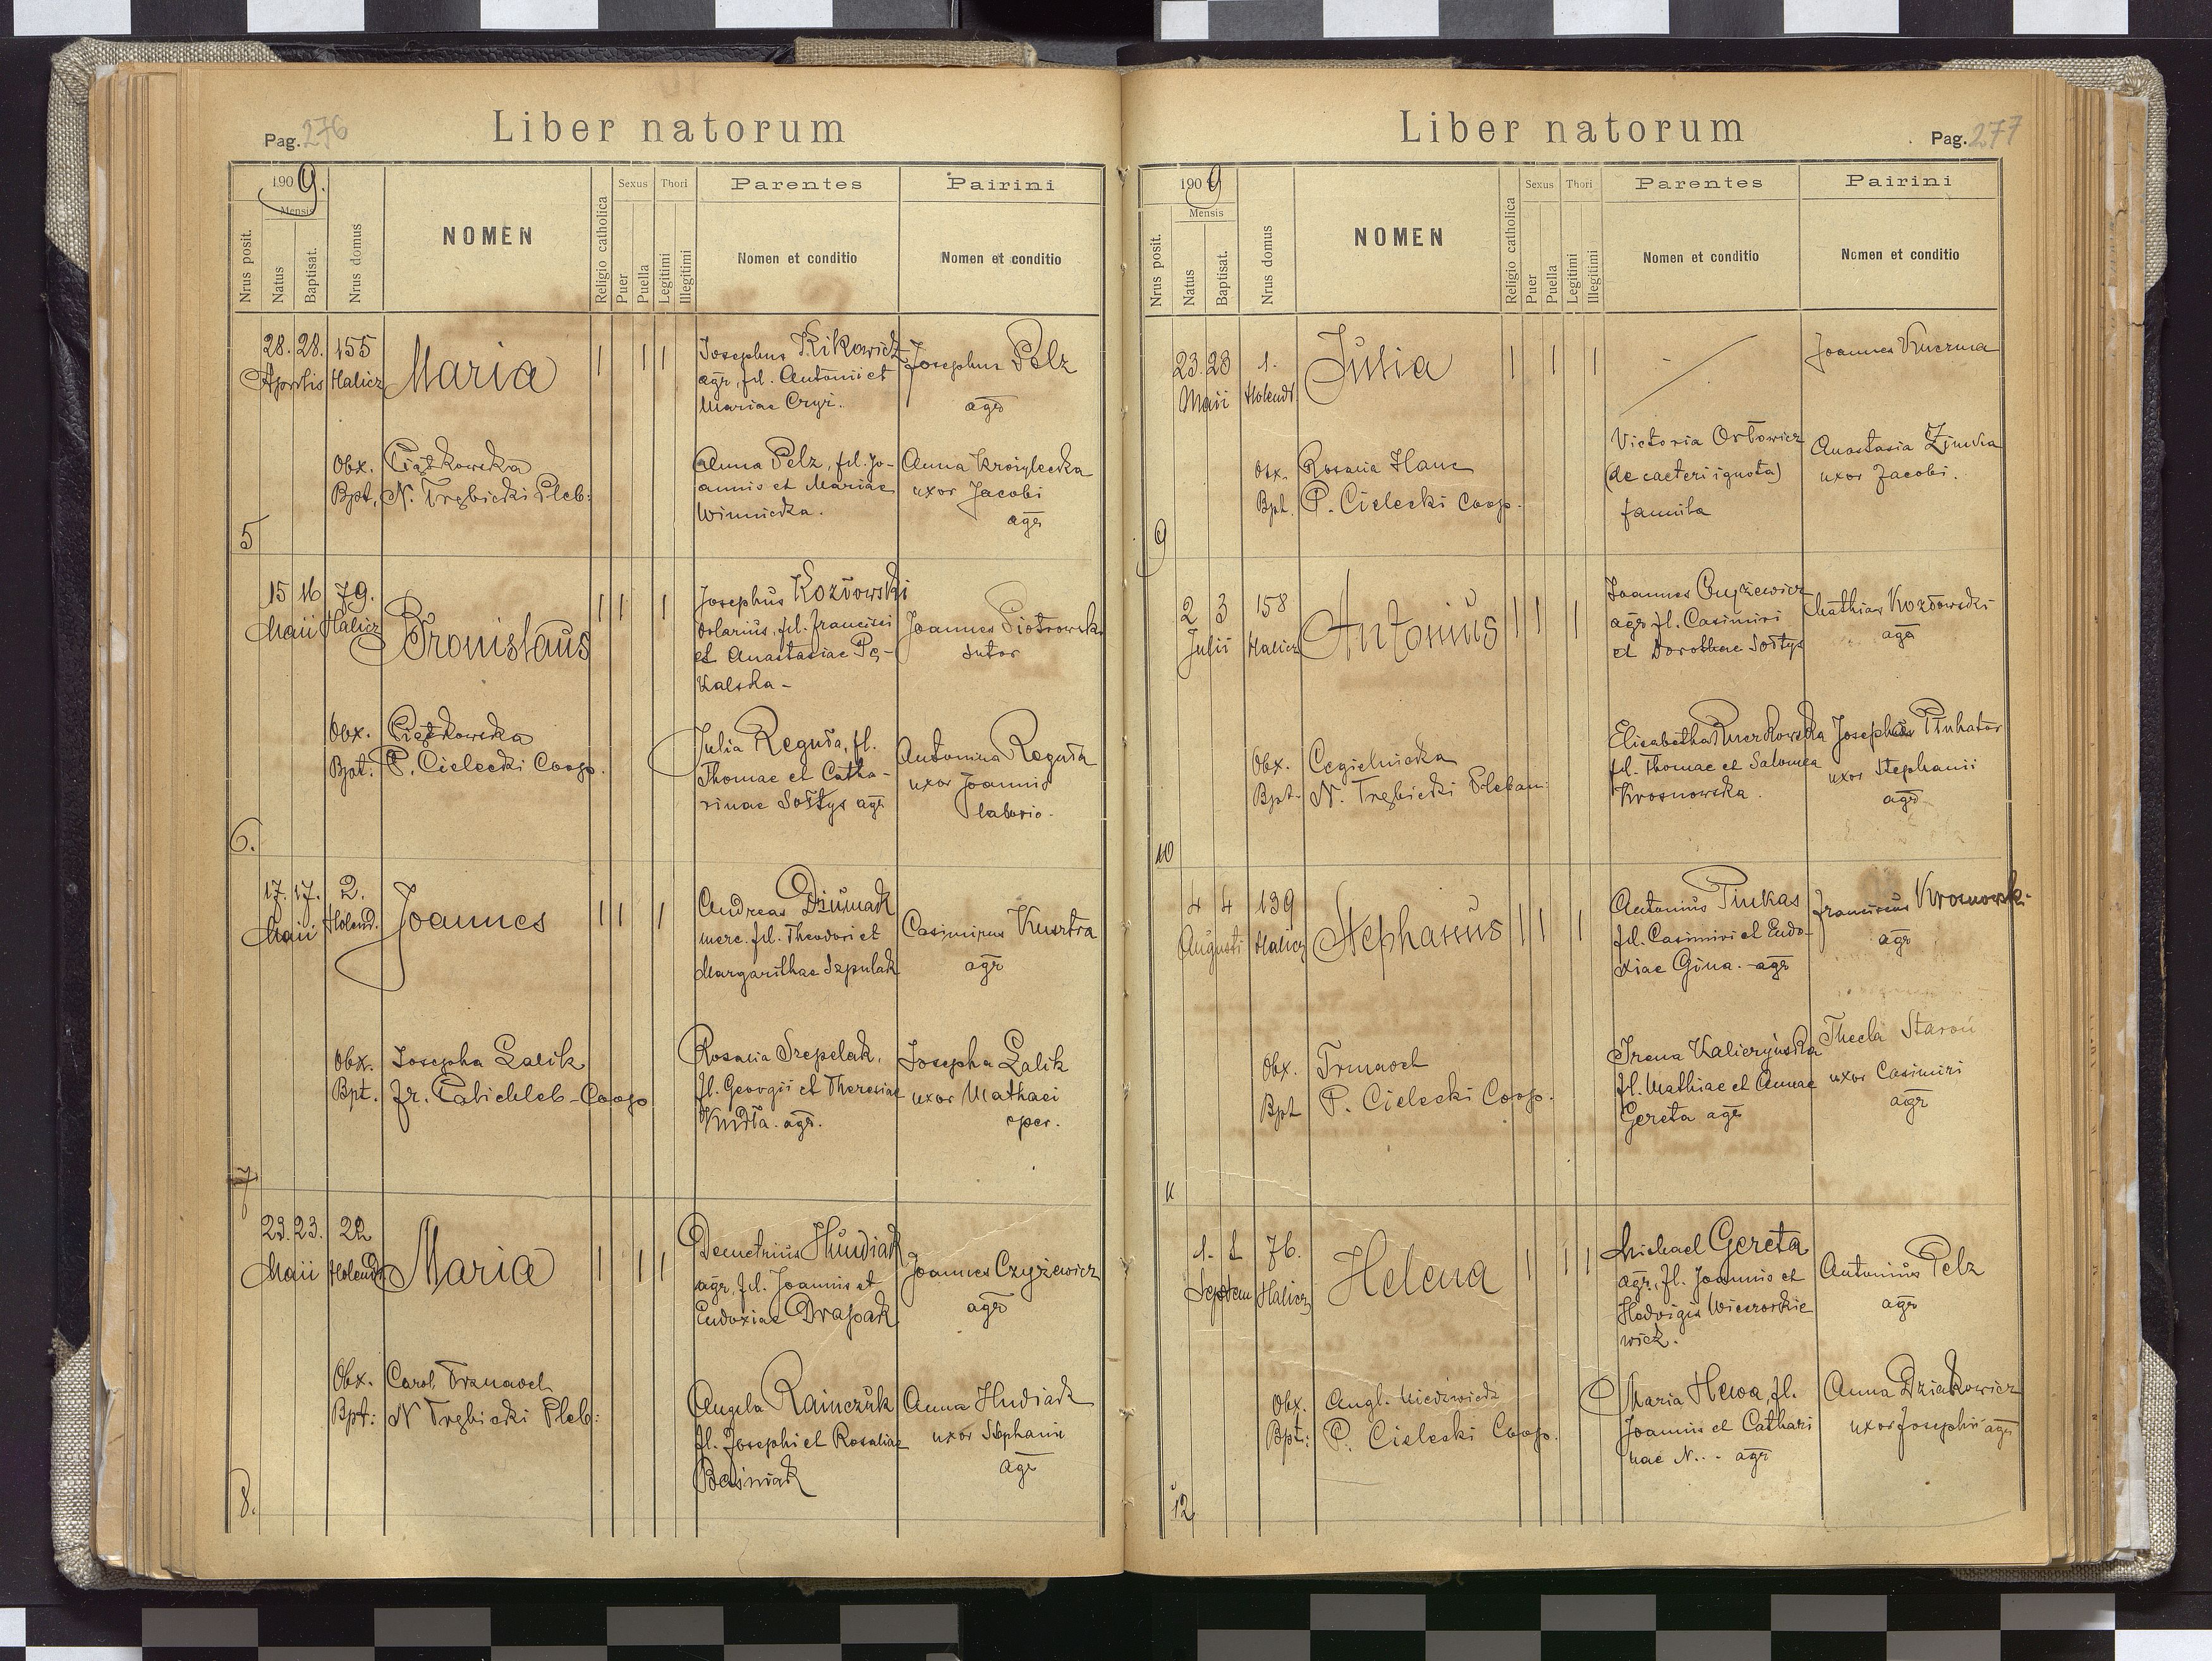 Pag. 276
Liber natorum
1909.
Mensis
Nrus posit.
Natus
Baptisat.
Nrus domus
NOMEN
Religio catholica
Sexus
Puer
Puella
Thori
Legitimi
Illegitimi
Parentes
Nomen et conditio
Pairini
Nomen et conditio
5
28. 28. 155
Aprilis Halicz
Maria
Obx. Piątkowska
Bpt. N. Trębicki Pleb:
Josephus Kikowicz
agr, fil. Antoni et
Mariae
Anna Pelz, fil. Jo-
annis et Mariae
Winnicka.
Josephus Pelz
agr
Anna
uxor Jacobi
agr
6.
15 16 79.
Maii Halicz
Bronislaus
Obx. Piątkowska
Bpt. P. Cielecki Coop.
Josephus Kozłowski
fil. Francisci
et Anastasiae Pę-
kalska-
Julia Reguła, fl.
Thomae et Catha-
rinae Sołtys agr
Joannes Piotrowski
sutor
Antonina Reguła
uxor Joannis
laborio.
7
17. 17. 2.
Maii Holend.
Joannes
Obx. Josepha Lalik
Bpt. fr. Coop
Andreas Dziumak
merc. fil. Theodori et
Margarithae Szpulak
Rosalia Szepelak,
fl. Georgii et Theresiae
agr.
Casimirus Kusztra
agr
Josepha Lalik
uxor Mathaei
oper.
8.
23. 23. 22
Maii Holend
Maria
Obx. Carol. Trmaoch
Bpt: N Trębicki Pleb:
Demetrius Hundiak
agr, fil. Joannis et
Eudoxiae Drapak
Angela Rainczuk
fl. Josephi et Rosaliae
Basiniak
Joannes Czyżewicz
agr
Anna Hudiak
uxor Stephani
agr
Liber natorum
Pag. 277
1909
Mensis
Nrus posit.
Natus
Baptisat.
Nrus domus
NOMEN
Religio catholica
Sexus
Puer
Puella
Thori
Legitimi
Illegitimi
Parentes
Nomen et conditio
Pairini
Nomen et conditio
9
23. 23 1.
Maii Holend.
Julia
Obx. Rosalia Hanc
Bpt. P. Cielecki Coop.
Victoria Orłowicz
(de caeteri ignota)
famula
Joannes Kuczma
Anastasia Zimka
uxor Jacobi.
10
2 3 158
Julii Halicz
Antonius
Obx. Cegielnicka
Bpt. N. Trębicki Pleban:
Joannes Czyżewicz
agr fl. Casimiri
et Dorothae Sołtys
Elisabetha
fil. Thomae et Salomea
Krosnowska.
Mathias Kozłowski
agr
Josepha Pinkator
uxor Stephanii
agr
11
4 4 139
Augusti Halicz
Stephanus
Obx. Trmaoch
Bpt P. Cielecki Coop.
Antonius Pinkas
fil. Casimiri et Eudo-
xiae Gina. agr
Irena Kaliczyńska
fl. Mathiae et Annae
Gereta agr
Franciscus Krosnowski
agr
Thecla Staroń
uxor Casimiri
agr
12
1. 2 76.
Septem Halicz
Helena
Obx. Angl. Niedźwiedź
Bpt: P. Cielecki Coop.
Michael Gereta
agr, fl. Joannis et
Hedvigis Wieczorkie
wicz.
Maria Hewa, fl.
Joannis et Cathari
nae N... agr
Antonius Pelz
agr
Anna Dziakowicz
uxor Josephi agr